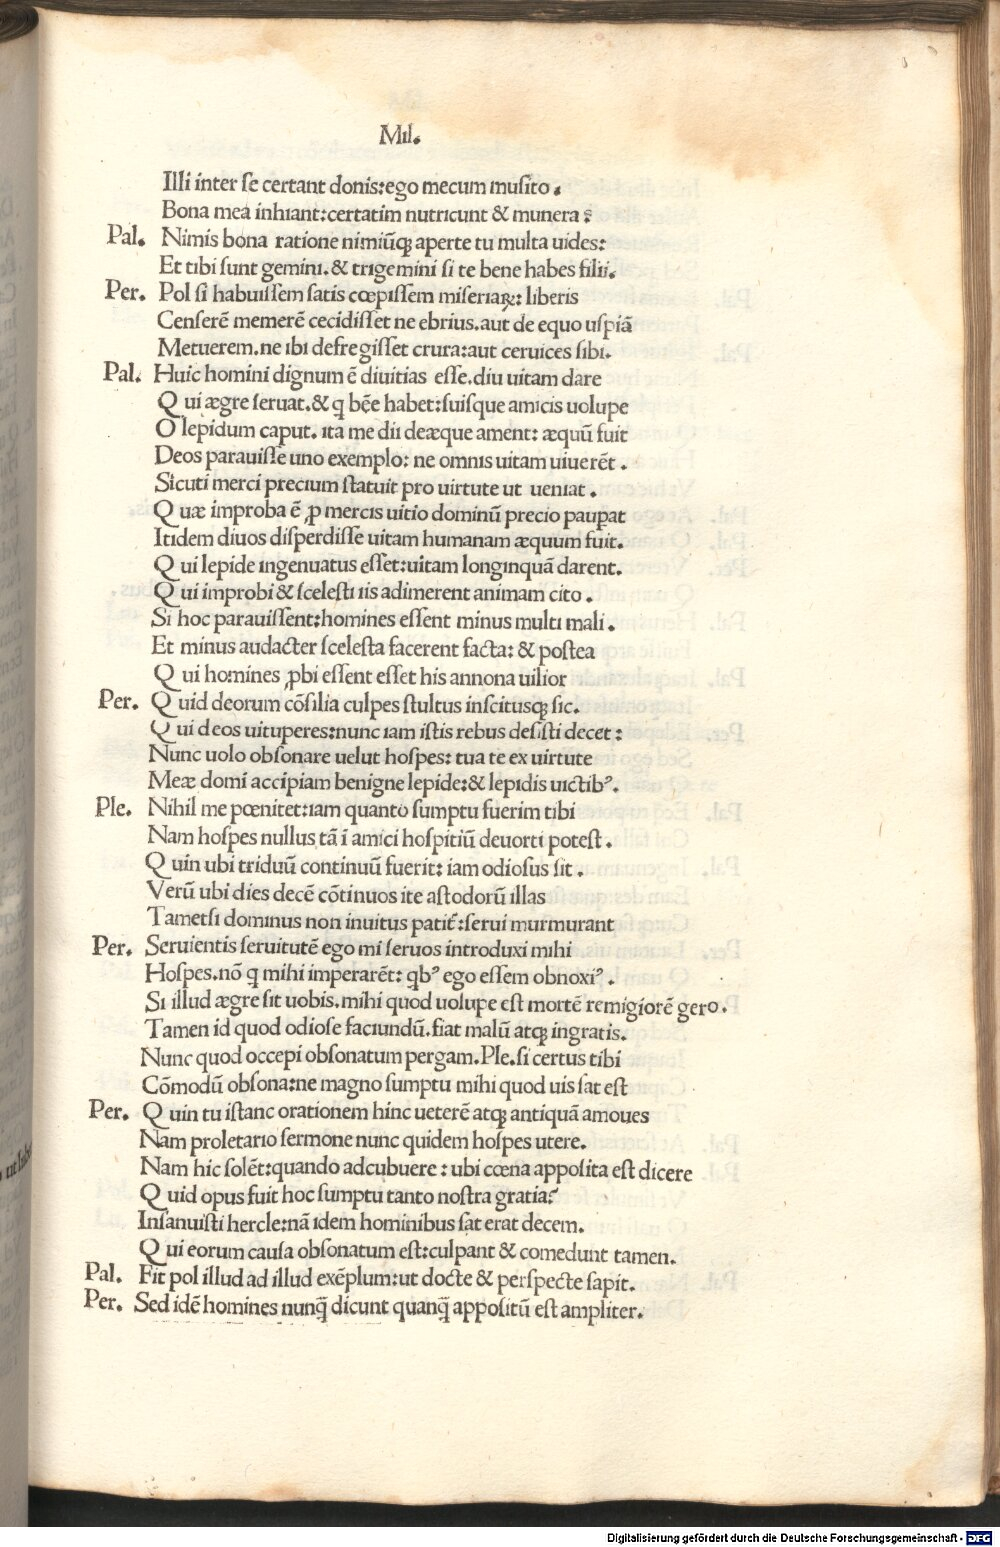 Mil.
Illi inter se certant donis:ego mecum musito.
Bona mea inhiant:certatim nutricunt & munera?
Pal. Nimis bona ratione nimiūqꝫ aperte tu multa uides:
Et tibi sunt gemini.& trigemini si te bene habes filii.
Per. Pol si habuissem satis cœpissem miseriaꝝ: liberis
Censerē memerē cecidisset ne ebrius.aut de equo uspiā
Metuerem.ne ibi defregisset crura:aut ceruices sibi.
Pal. Huic homini dignum ē diuitias esse.diu uitam dare
Qui ægre seruat.& q bēe habet:suisque amicis uolupe
O lepidum caput. ita me dii deæque ament: æquū fuit
Deos parauisse uno exemplo: ne omnis uitam uiuerēt.
Sicuti merci precium statuit pro uirtute ut ueniat.
Quæ improba ē ꝓ mercis uitio dominū precio paupat
Itidem diuos disperdisse uitam humanam æquum fuit.
Qui lepide ingenuatus esset:uitam longinquā darent.
Qui improbi & scelesti iis adimerent animam cito.
Si hoc parauissent:homines essent minus multi mali.
Et minus audacter scelesta facerent facta: & postea
Qui homines ꝓbi essent esset his annona uilior
Per. Quid deorum cōsilia culpes stultus inscitusqꝫ sic.
Qui deos uituperes:nunc iam istis rebus desisti decet:
Nunc uolo obsonare uelut hospes: tua te ex uirtute
Meæ domi accipiam benigne lepide:& lepidis uictibꝰ.
Ple. Nihil me pœnitet:iam quanto sumptu fuerim tibi
Nam hospes nullus tā ī amici hospitiū deuorti potest.
Quin ubi triduū continuū fuerit: iam odiosus sit.
Verū ubi dies decē cōtinuos ite astodorū illas
Tametsi dominus non inuitus patit̃:serui murmurant
Per. Seruientis seruitutē ego mi seruos introduxi mihi
Hospes.nō q̄ mihi imperarēt: qbꝰ ego essem obnoxiꝰ.
Si illud ægre sit uobis.mihi quod uolupe est mortē remigiorē gero.
Tamen id quod odiose faciundū.fiat malū atqꝫ ingratis.
Nunc quod occepi obsonatum pergam.Ple.si certus tibi
Cōmodū obsona:ne magno sumptu mihi quod uis sat est
Per. Quin tu istanc orationem hinc ueterē atqꝫ antiquā amoues
Nam proletario sermone nunc quidem hospes utere.
Nam hic solēt:quando adcubuere: ubi cœna apposita est dicere
Quid opus fuit hoc sumptu tanto nostra gratia?
Insanuisti hercle:nā idem hominibus sat erat decem.
Qui eorum causa obsonatum est:culpant & comedunt tamen.
Pal. Fit pol illud ad illud exēplum:ut docte & perspecte sapit.
Per. Sed idē homines nunq̄ dicunt quanq̄ appositū est ampliter.
Digitalisierung gefördert durch die Deutsche Forschungsgemeinschaft - DFG